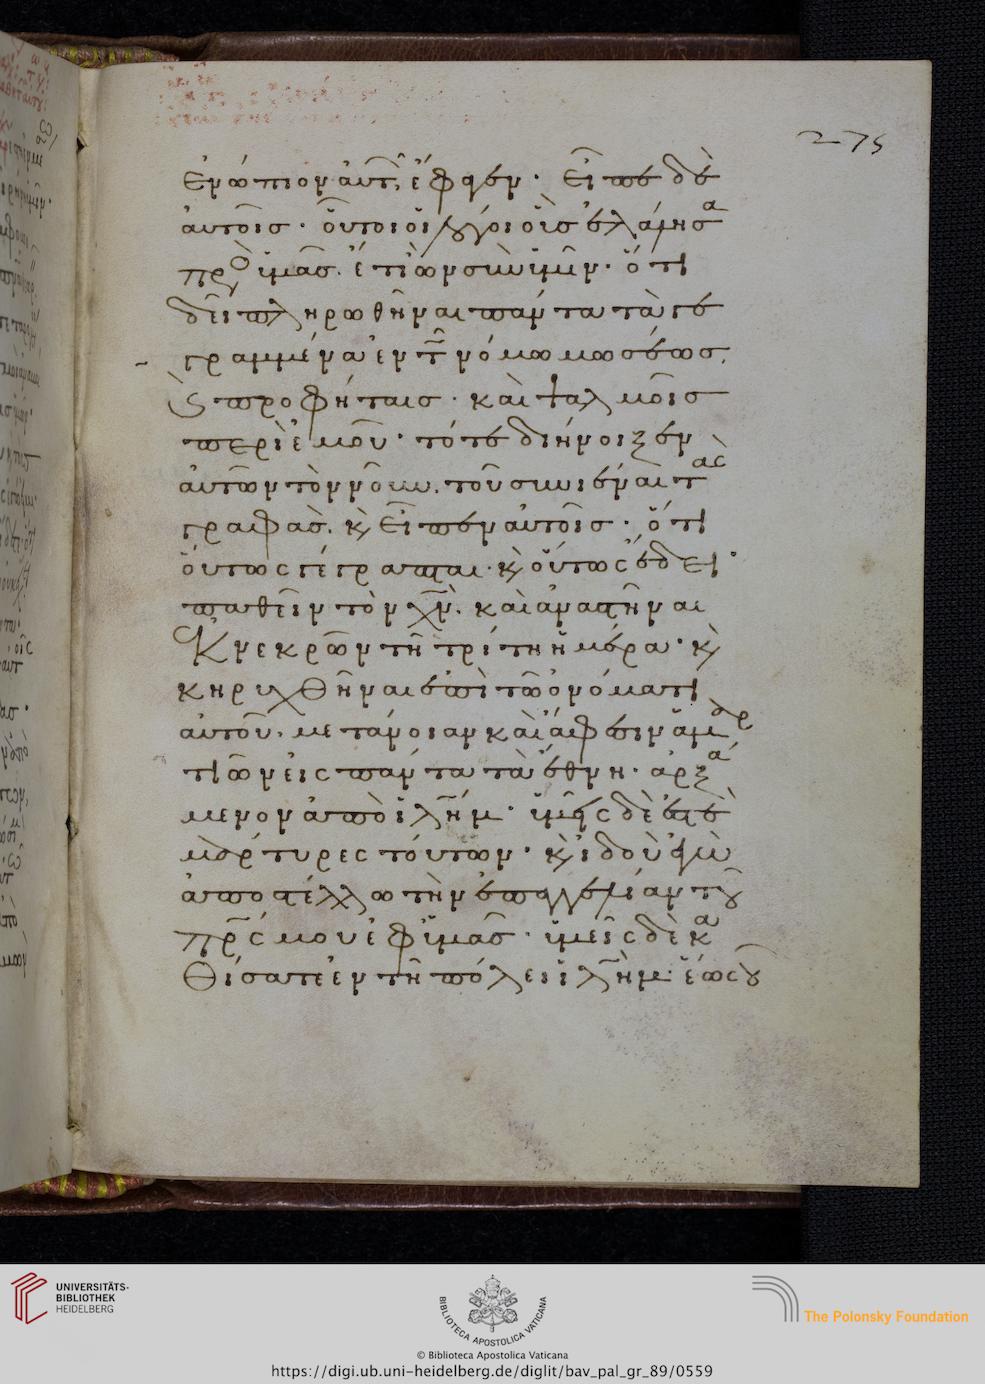 275
ἐνώπιον αὐτῶν ἔφαγεν· εἶπε δὲ
αὐτοῖς· οὗτοι οἱ λόγοι οὓς ἐλάλησα
πρὸς ὑμᾶς. ἔτι ὢν σὺν ὑμῖν· ὅτι
δεῖ πληρωθῆναι πάντα τὰ γε
γραμμένα ἐν τῷ νόμω μωσέως,
καὶ προφήταις· καὶ ψαλμοῖς
περὶ ἐμοῦ· τότε διήνοιξεν
αὐτῶν τὸν νοῦν. τοῦ συνιέναι τὰς
γραφάς. κ εἶπεν αὐτοῖς· ὅτι
οὕτως γέγραπται· κ οὕτως ἔδει·
παθεῖν τὸν χν. καὶ ἀναστῆναι
ἐκ νεκρῶν τῆ τρίτη ἡμέρα· κ
κηρυχθῆναι ἐπὶ τῶ ὀνόματι
αὐτοῦ, μετάνοιαν καὶ ἄφεσιν ἁμαρ
τιῶν εἰς πάντα τὰ ἔθνη· ἀρξά
μενον ἀπὸ ἱλημ· ὑμεῖς δὲ ἐστὲ
μάρτυρες τούτων· κ ἰδοὺ ἐγὼ
ἀποστέλλω τὴν ἐπαγγελίαν τοῦ
πρς μου ἐφ ὑμᾶς· ὑμεῖς δὲ κα
θίσατε ἐν τῆ πόλει ἱλημ· ἕως οὗ
UNIVERSITÄTS-
BIBLIOTHEK
HEIDELBERG
BIBLIOTECA APOSTOLICA VATICANA
The Polonsky Foundation
© Biblioteca Apostolica Vaticana
https://digi.ub.uni-heidelberg.de/diglit/bav_pal_gr_89/0559